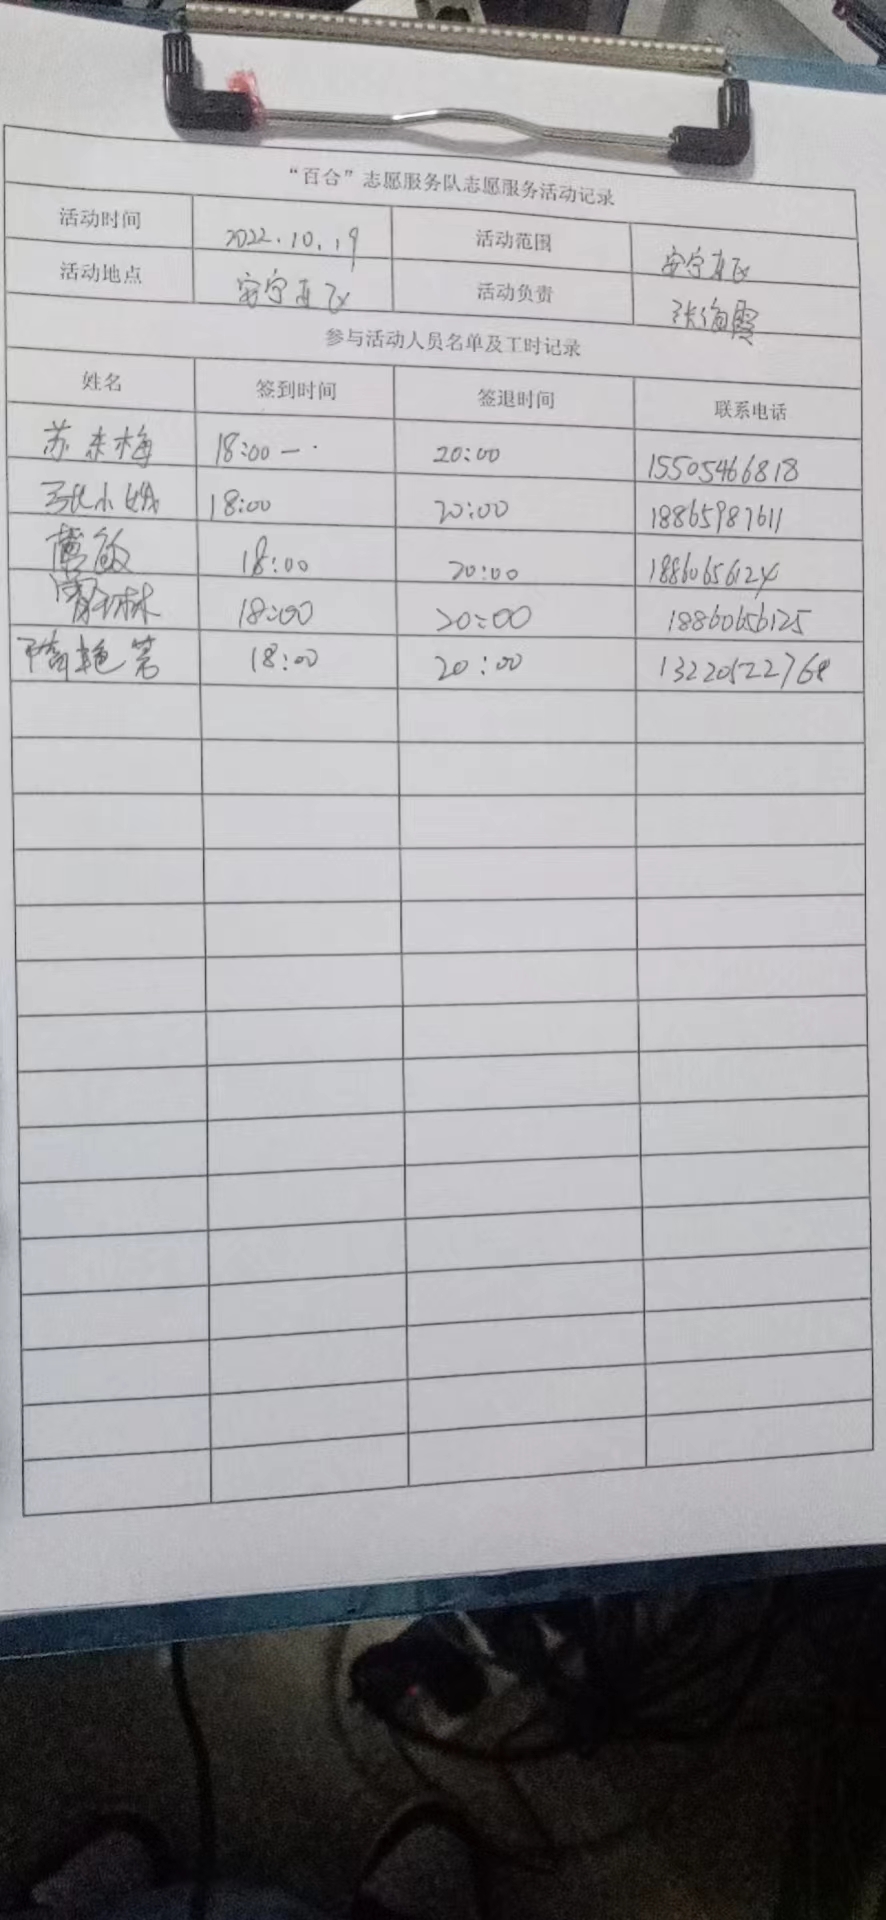 “百合”志愿服务队志愿服务活动记录
活动时间 2022.10.19 活动范围 安宁
活动地点 安宁 活动负责 张海霞
参与活动人员名单及工时记录
姓名 签到时间 签退时间 联系电话
苏来梅 18:00 — 20:00 15505466818
张小娥 18:00 20:00 18865987611
敏 18:00 20:00 18860656124
林 18:00 20:00 18860656125
艳 18:00 20:00 13220522768